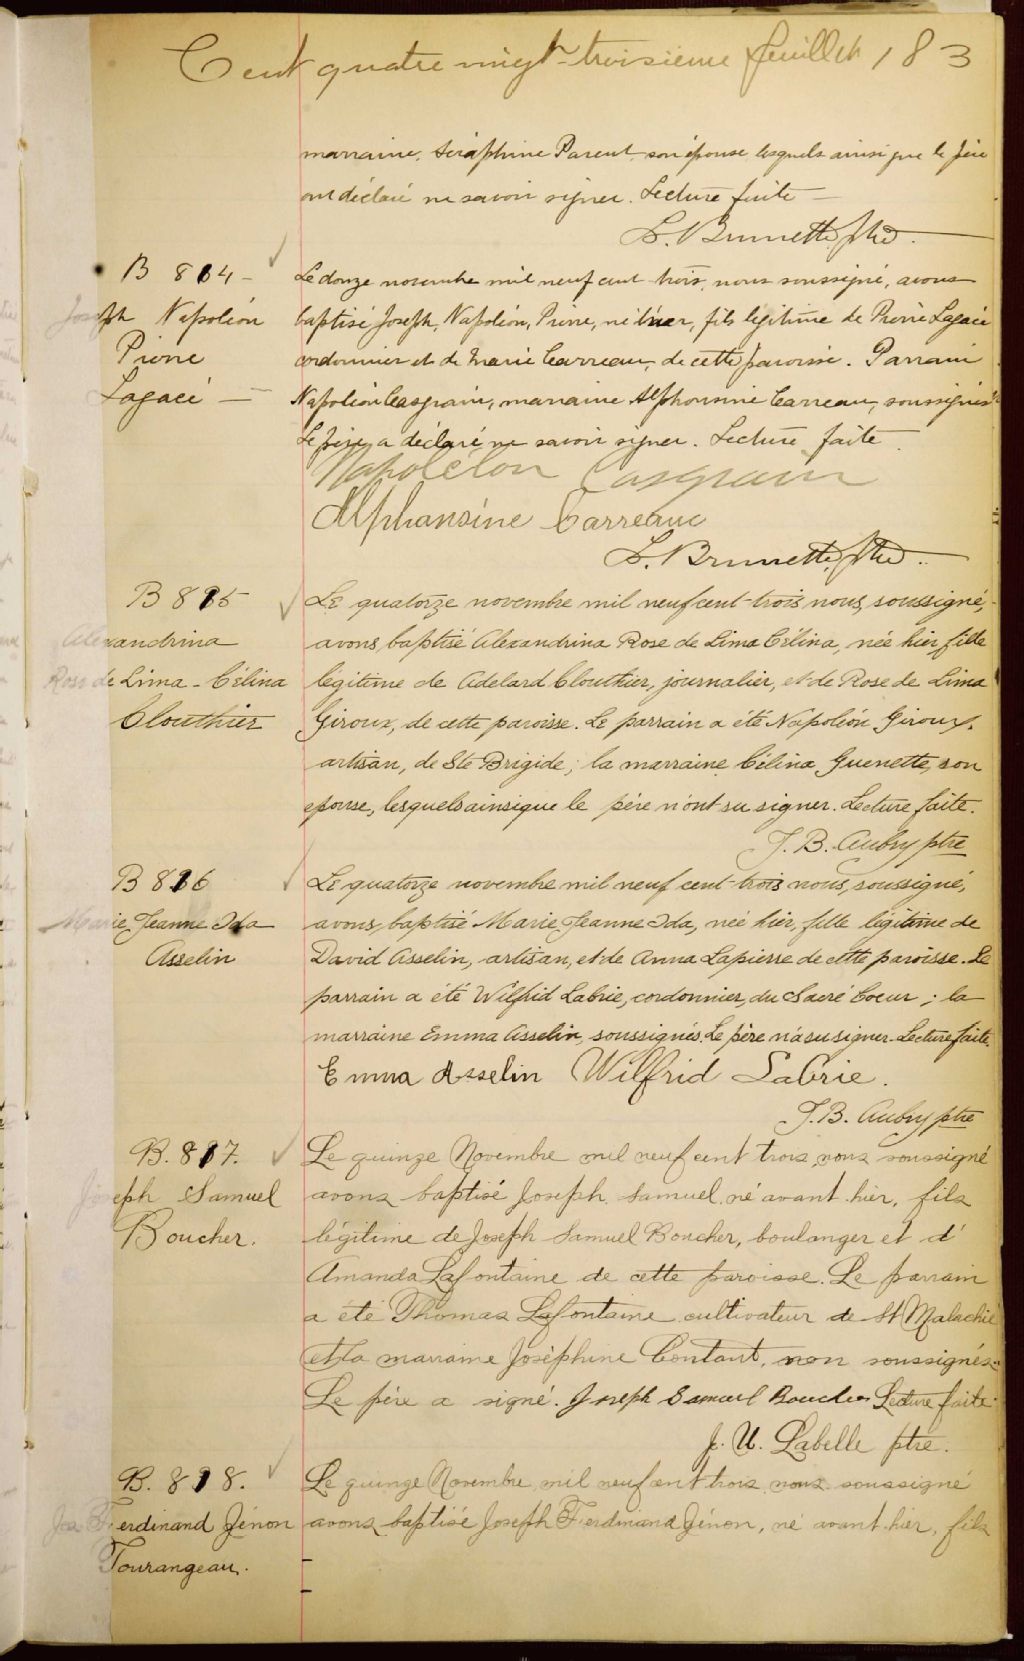 Cent quatre vingt-troisième feuillet 183
marraine, Séraphine Parent, son épouse lesquels ainsi que le père
ont déclaré ne savoir signer. Lecture faite —
L. Brunette, ptre.
B 814 –
Joseph Napoléon
Pierre
Lagacé —
Le douze novembre mil neuf cent trois, nous soussigné, avons
baptisé Joseph, Napoléon, Pierre, né hier, fils légitime de Pierre Lagacé
cordonnier et de Marie Carreau, de cette paroisse. Parrain
Napoléon Casgrain, marraine Alphonsine Carreau, soussignés
Le père a déclaré ne savoir signer. Lecture faite.
Napoléon Casgrain
Alphonsine Carreau
L. Brunette, ptre.
B 815
Alexandrina
Rose de Lima - Célina
Clouthier
Le quatorze novembre mil neuf cent-trois nous, soussigné,
avons baptisé Alexandrina Rose de Lima Célina, née hier, fille
légitime de Adelard Clouthier, journalier, et de Rose de Lima
Giroux, de cette paroisse. Le parrain a été Napoléon Giroux,
artisan, de Ste Brigide; la marraine Célina Guenette, son
epouse, lesquels ainsi que le père n'ont su signer. Lecture faite.
J. B. Aubry ptre
B 816
Marie Jeanne Ida
Asselin
Le quatorze novembre mil neuf cent-trois nous, soussigné,
avons baptisé Marie Jeanne Ida, née hier, fille légitime de
David Asselin, artisan, et de Anna Lapierre de cette paroisse. Le
parrain a été Wilfrid Labrie, cordonnier, du Sacré Coeur; la
marraine Emma Asselin, soussignés. Le père n'a su signer. Lecture faite.
Emma Asselin Wilfrid Labrie.
J. B. Aubry ptre
B. 817.
Joseph Samuel
Boucher.
Le quinze Novembre mil neuf cent trois nous soussigné
avons baptisé Joseph Samuel né avant hier, fils
légitime de Joseph Samuel Boucher, boulanger et d'
Amanda Lafontaine de cette paroisse. Le parrain
a été Thomas Lafontaine cultivateur de St Malachie
et la marraine Joséphine Contant, non soussignés.
Le père a signé. Joseph Samuel Boucher Lecture faite.
J. U. Labelle ptre.
B. 818.
Jos Ferdinand Jénon
Tourangeau.
Le quinze Novembre mil neuf cent trois nous soussigné
avons baptisé Joseph Ferdinand Jénon, né avant hier, fils